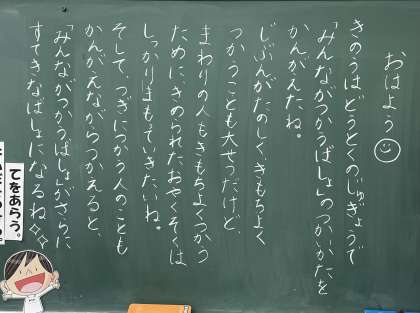 おはよう
きのうはどうとくのじゅぎょうで
「みんながつかうばしょ」のつかいかたを
かんがえたね。
じぶんがたのしくきもちよく
つかうことも大せつだけど、
まわりの人もきもちよくつかう
ために、きめられたおやくそくは
しっかりまもっていきたいね。
そして、つぎにつかう人のことも
かんがえながらつかえると、
「みんながつかうばしょ」がさらに
すてきなばしょになるね
てをあらう。